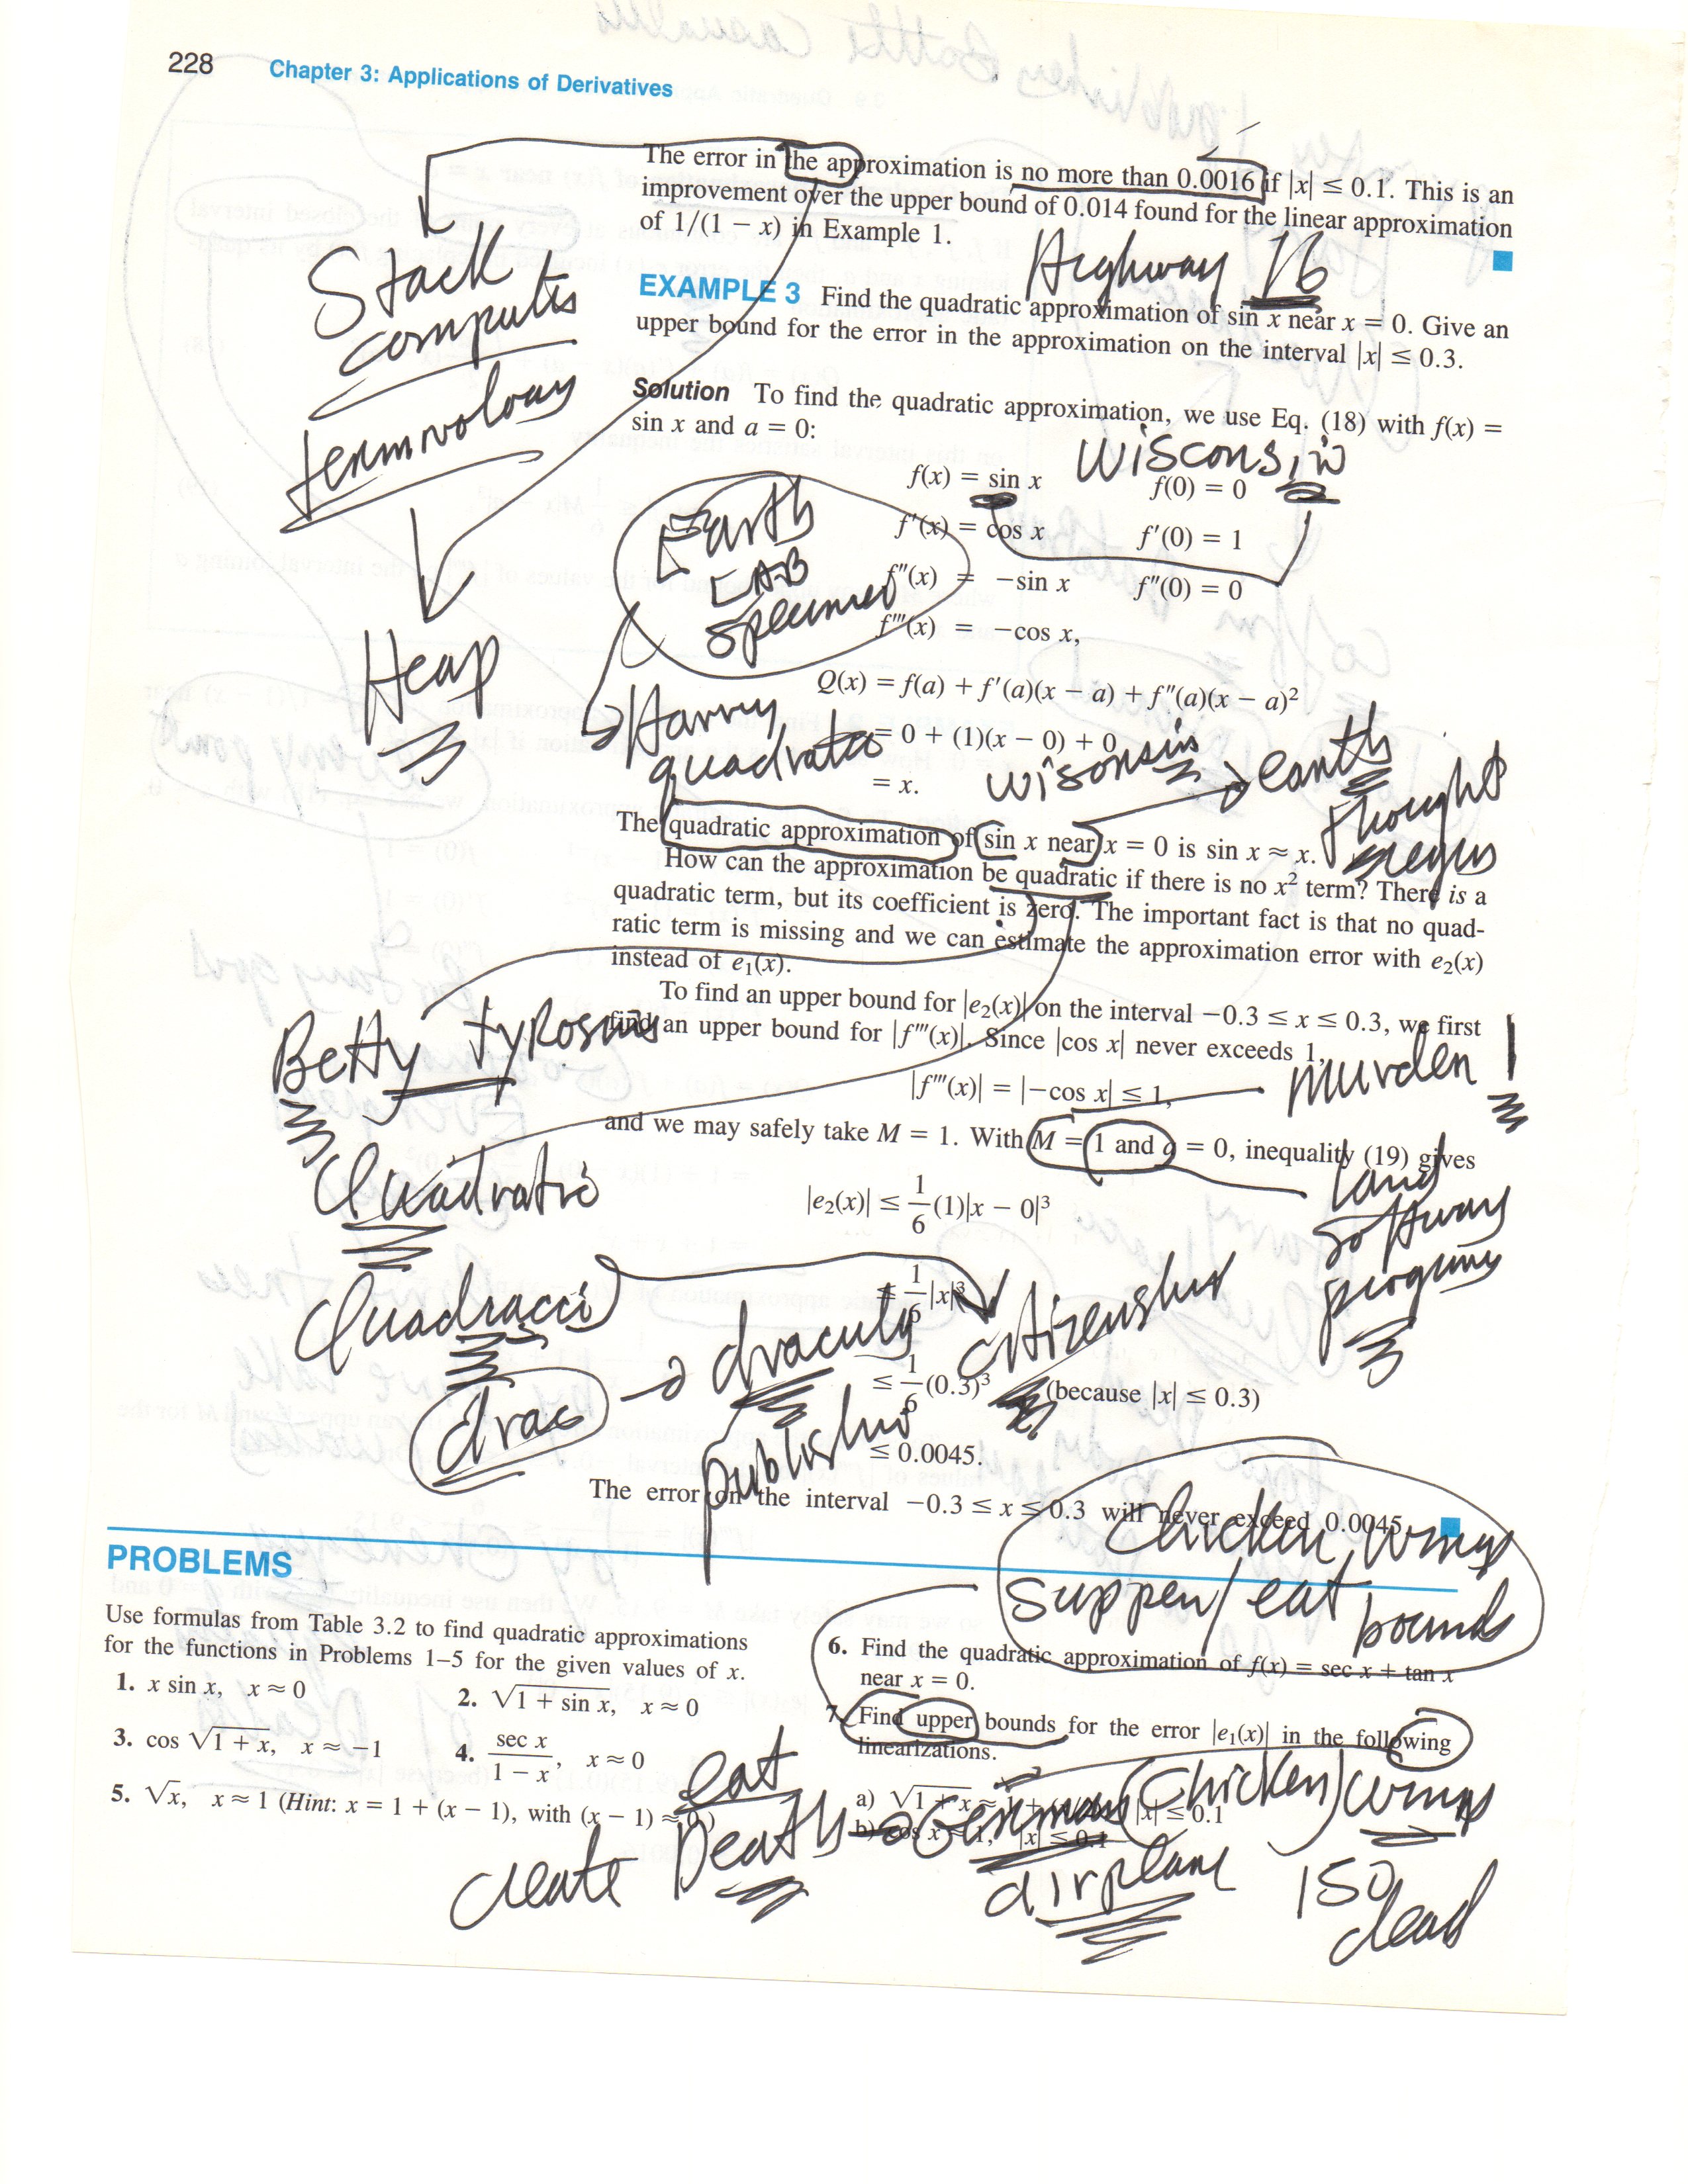 228 Chapter 3: Applications of Derivatives
The error in the approximation is no more than 0.0016 if |x| ≤ 0.1. This is an
improvement over the upper bound of 0.014 found for the linear approximation
of 1/(1 − x) in Example 1.
Highway 16
Stack
computer
terminology
Heap
EXAMPLE 3 Find the quadratic approximation of sin x near x = 0. Give an
upper bound for the error in the approximation on the interval |x| ≤ 0.3.
Solution To find the quadratic approximation, we use Eq. (18) with f(x) =
sin x and a = 0:
Wisconsin
f(x) = sin x f(0) = 0
f′(x) = cos x f′(0) = 1
f″(x) = −sin x f″(0) = 0
f‴(x) = −cos x,
Earth
LAB
Specimen
Q(x) = f(a) + f′(a)(x − a) + f″(a)(x − a)²
= 0 + (1)(x − 0) + 0
= x.
Harry
wisonsin
earth
thought
The quadratic approximation of sin x near x = 0 is sin x ≈ x.
How can the approximation be quadratic if there is no x² term? There is a
quadratic term, but its coefficient is zero. The important fact is that no quad-
ratic term is missing and we can estimate the approximation error with e₂(x)
instead of e₁(x).
To find an upper bound for |e₂(x)| on the interval −0.3 ≤ x ≤ 0.3, we first
find an upper bound for |f‴(x)|. Since |cos x| never exceeds 1,
Betty
|f‴(x)| = |−cos x| ≤ 1,
murder
and we may safely take M = 1. With M = 1 and a = 0, inequality (19) gives
Quadratic
land
|e₂(x)| ≤ 1/6 (1)|x − 0|³
Quadracci
≤ 1/6 |x|³
drac
dracula
≤ 1/6 (0.3)³ (because |x| ≤ 0.3)
≤ 0.0045.
The error on the interval −0.3 ≤ x ≤ 0.3 will never exceed 0.0045.
Chicken wings
supper/eat bounds
PROBLEMS
Use formulas from Table 3.2 to find quadratic approximations
for the functions in Problems 1–5 for the given values of x.
1. x sin x, x ≈ 0
2. √(1 + sin x), x ≈ 0
3. cos √(1 + x), x ≈ −1
4. sec x/(1 − x), x ≈ 0
5. √x, x ≈ 1 (Hint: x = 1 + (x − 1), with (x − 1) ≈ 0.)
6. Find the quadratic approximation of f(x) = sec x + tan x
near x = 0.
7. Find upper bounds for the error |e₁(x)| in the following
linearizations.
a) √(1 + x) ≈ 1 + |x| ≤ 0.1
b) cos x ≈ 1, |x| ≤ 0.1
eat
create Death German (Chicken) wings
airplane
150
dead